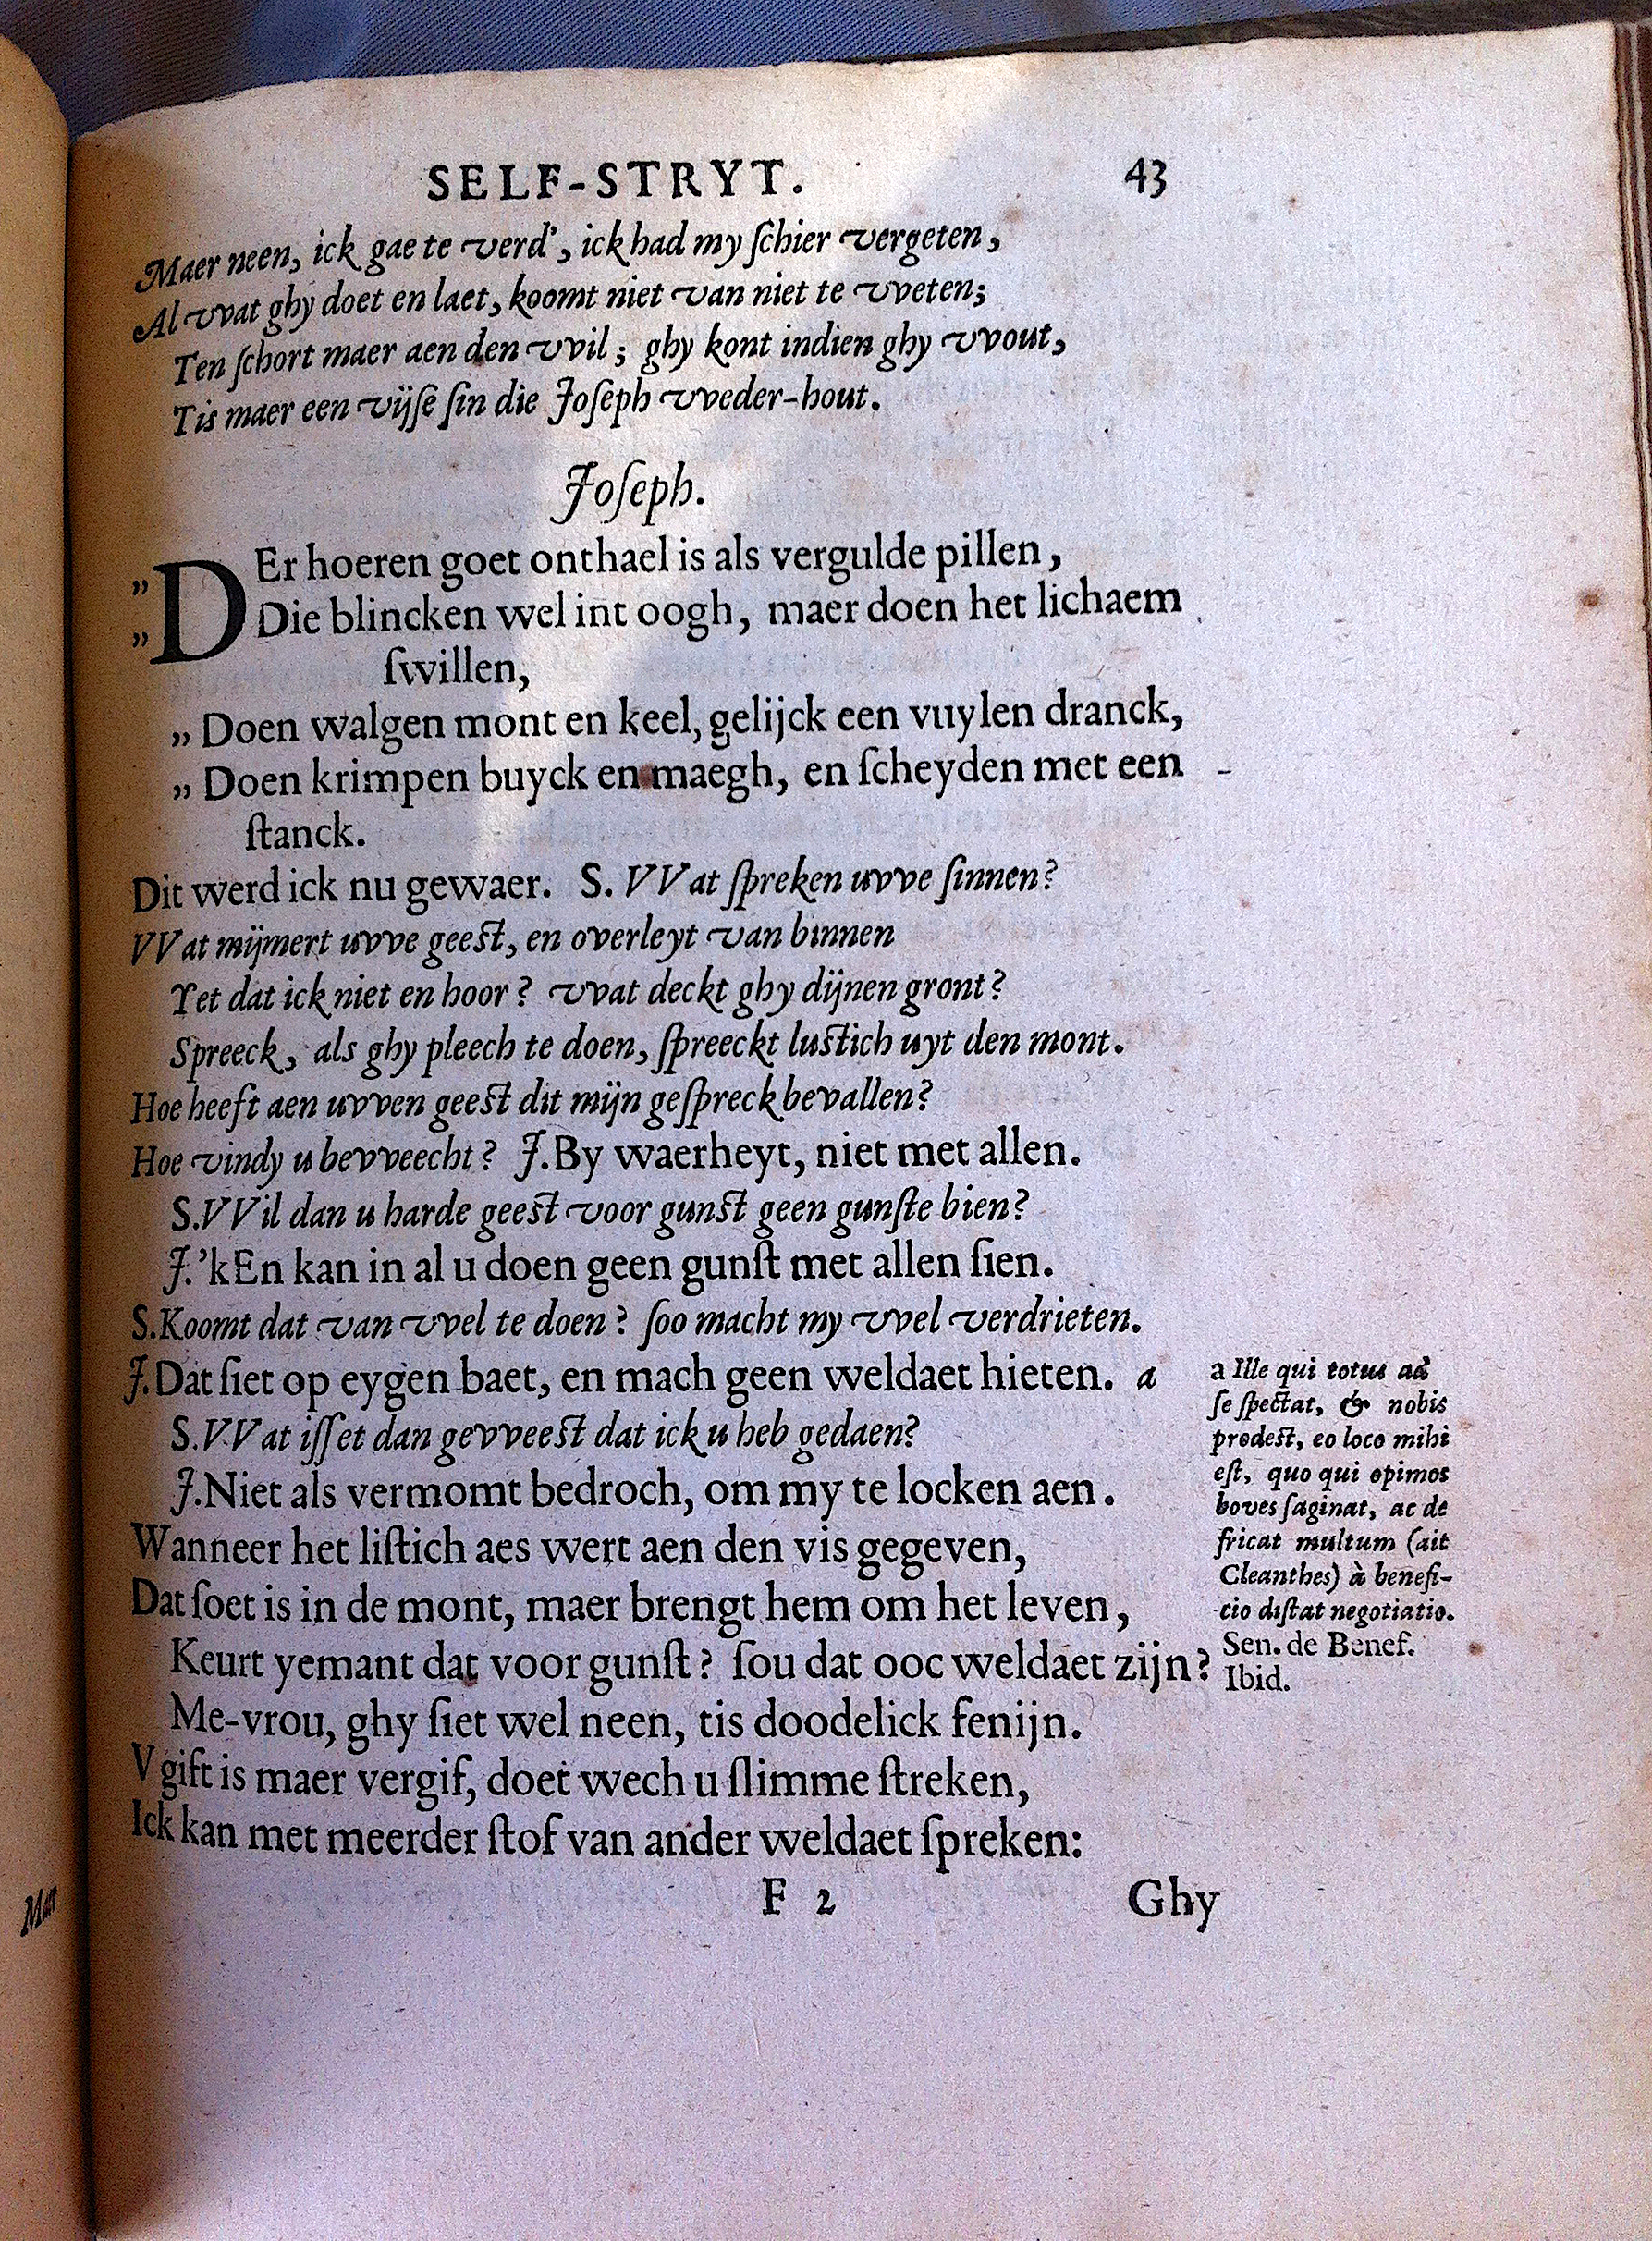 SELF-STRYT. 43
Maer neen, ick gae te verd', ick had my ſchier vergeten,
Al vvat ghy doet en laet, koomt niet van niet te vveten;
Ten ſchort maer aen den vvil; ghy kont indien ghy vvout,
Tis maer een vijſe ſin die Joſeph vveder-hout.
Joſeph.
„ DEr hoeren goet onthael is als vergulde pillen,
„ Die blincken wel int oogh, maer doen het lichaem
ſwillen,
„ Doen walgen mont en keel, gelijck een vuylen dranck,
„ Doen krimpen buyck en maegh, en ſcheyden met een
ſtanck.
Dit werd ick nu gewaer. S. VVat ſpreken uvve ſinnen?
VVat mijmert uvve geeſt, en overleyt van binnen
Yet dat ick niet en hoor? vvat deckt ghy dijnen gront?
Spreeck, als ghy pleech te doen, ſpreeckt luſtich uyt den mont.
Hoe heeft aen uvven geeſt dit mijn geſpreck bevallen?
Hoe vindy u bevveecht? J. By waerheyt, niet met allen.
S. VVil dan u harde geeſt voor gunſt geen gunſte bien?
J. 'kEn kan in al u doen geen gunſt met allen ſien.
S. Koomt dat van vvel te doen? ſoo macht my vvel verdrieten.
J. Dat ſiet op eygen baet, en mach geen weldaet hieten. a
S. VVat iſſet dan gevveeſt dat ick u heb gedaen?
J. Niet als vermomt bedroch, om my te locken aen.
Wanneer het liſtich aes wert aen den vis gegeven,
Dat ſoet is in de mont, maer brengt hem om het leven,
Keurt yemant dat voor gunſt? ſou dat ooc weldaet zijn?
Me-vrou, ghy ſiet wel neen, tis doodelick fenijn.
V gift is maer vergif, doet wech u ſlimme ſtreken,
Ick kan met meerder ſtof van ander weldaet ſpreken:
F 2 Ghy
a Ille qui totus ad
ſe ſpectat, & nobis
prodeſt, eo loco mihi
eſt, quo qui opimos
boves ſaginat, ac de
fricat multum (ait
Cleanthes) à benefi-
cio diſtat negotiatio.
Sen. de Benef.
Ibid.